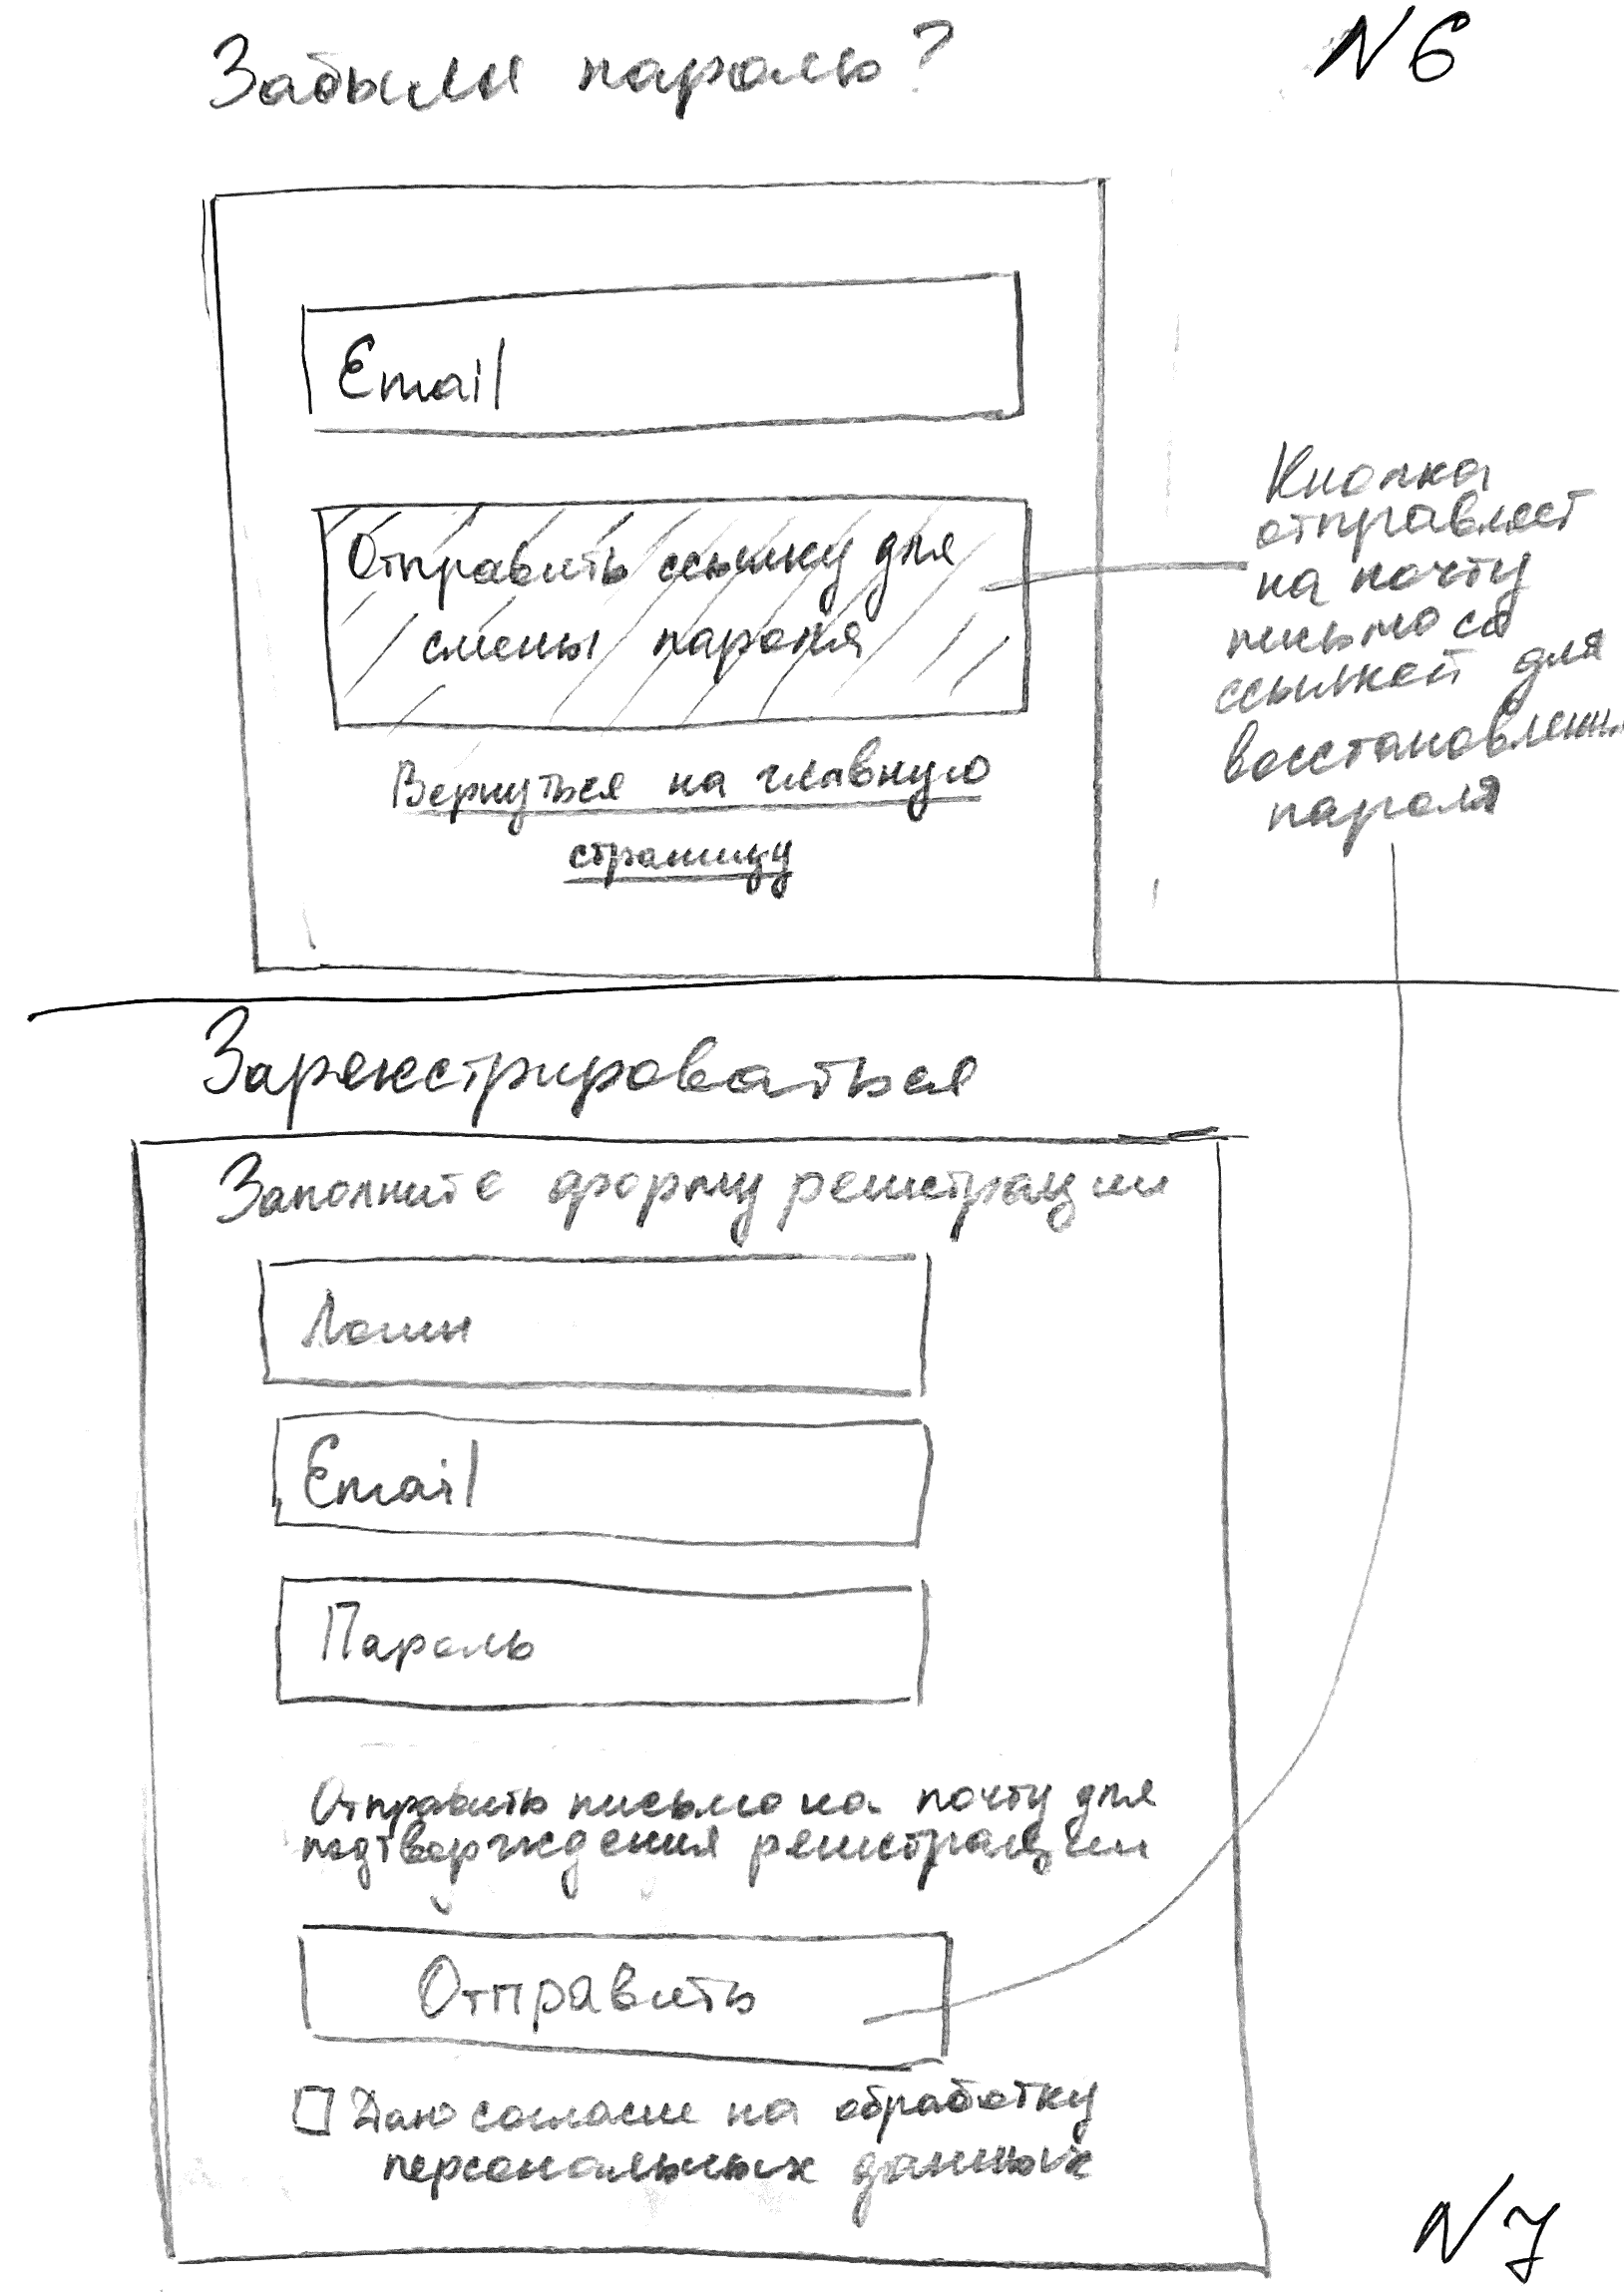 Забыли пароль?
N 6
Email
Отправить ссылку для
смены пароля
Вернуться на главную
страницу
Кнопка
отправляет
на почту
письмо со
ссылкой для
восстановления
пароля
Зарекстрироваться
Заполните форму регистрации
Логин
Email
Пароль
Отправить письмо на почту для
подтверждения регистрации
Отправить
Даю согласие на обработку
персональных данных
N 7